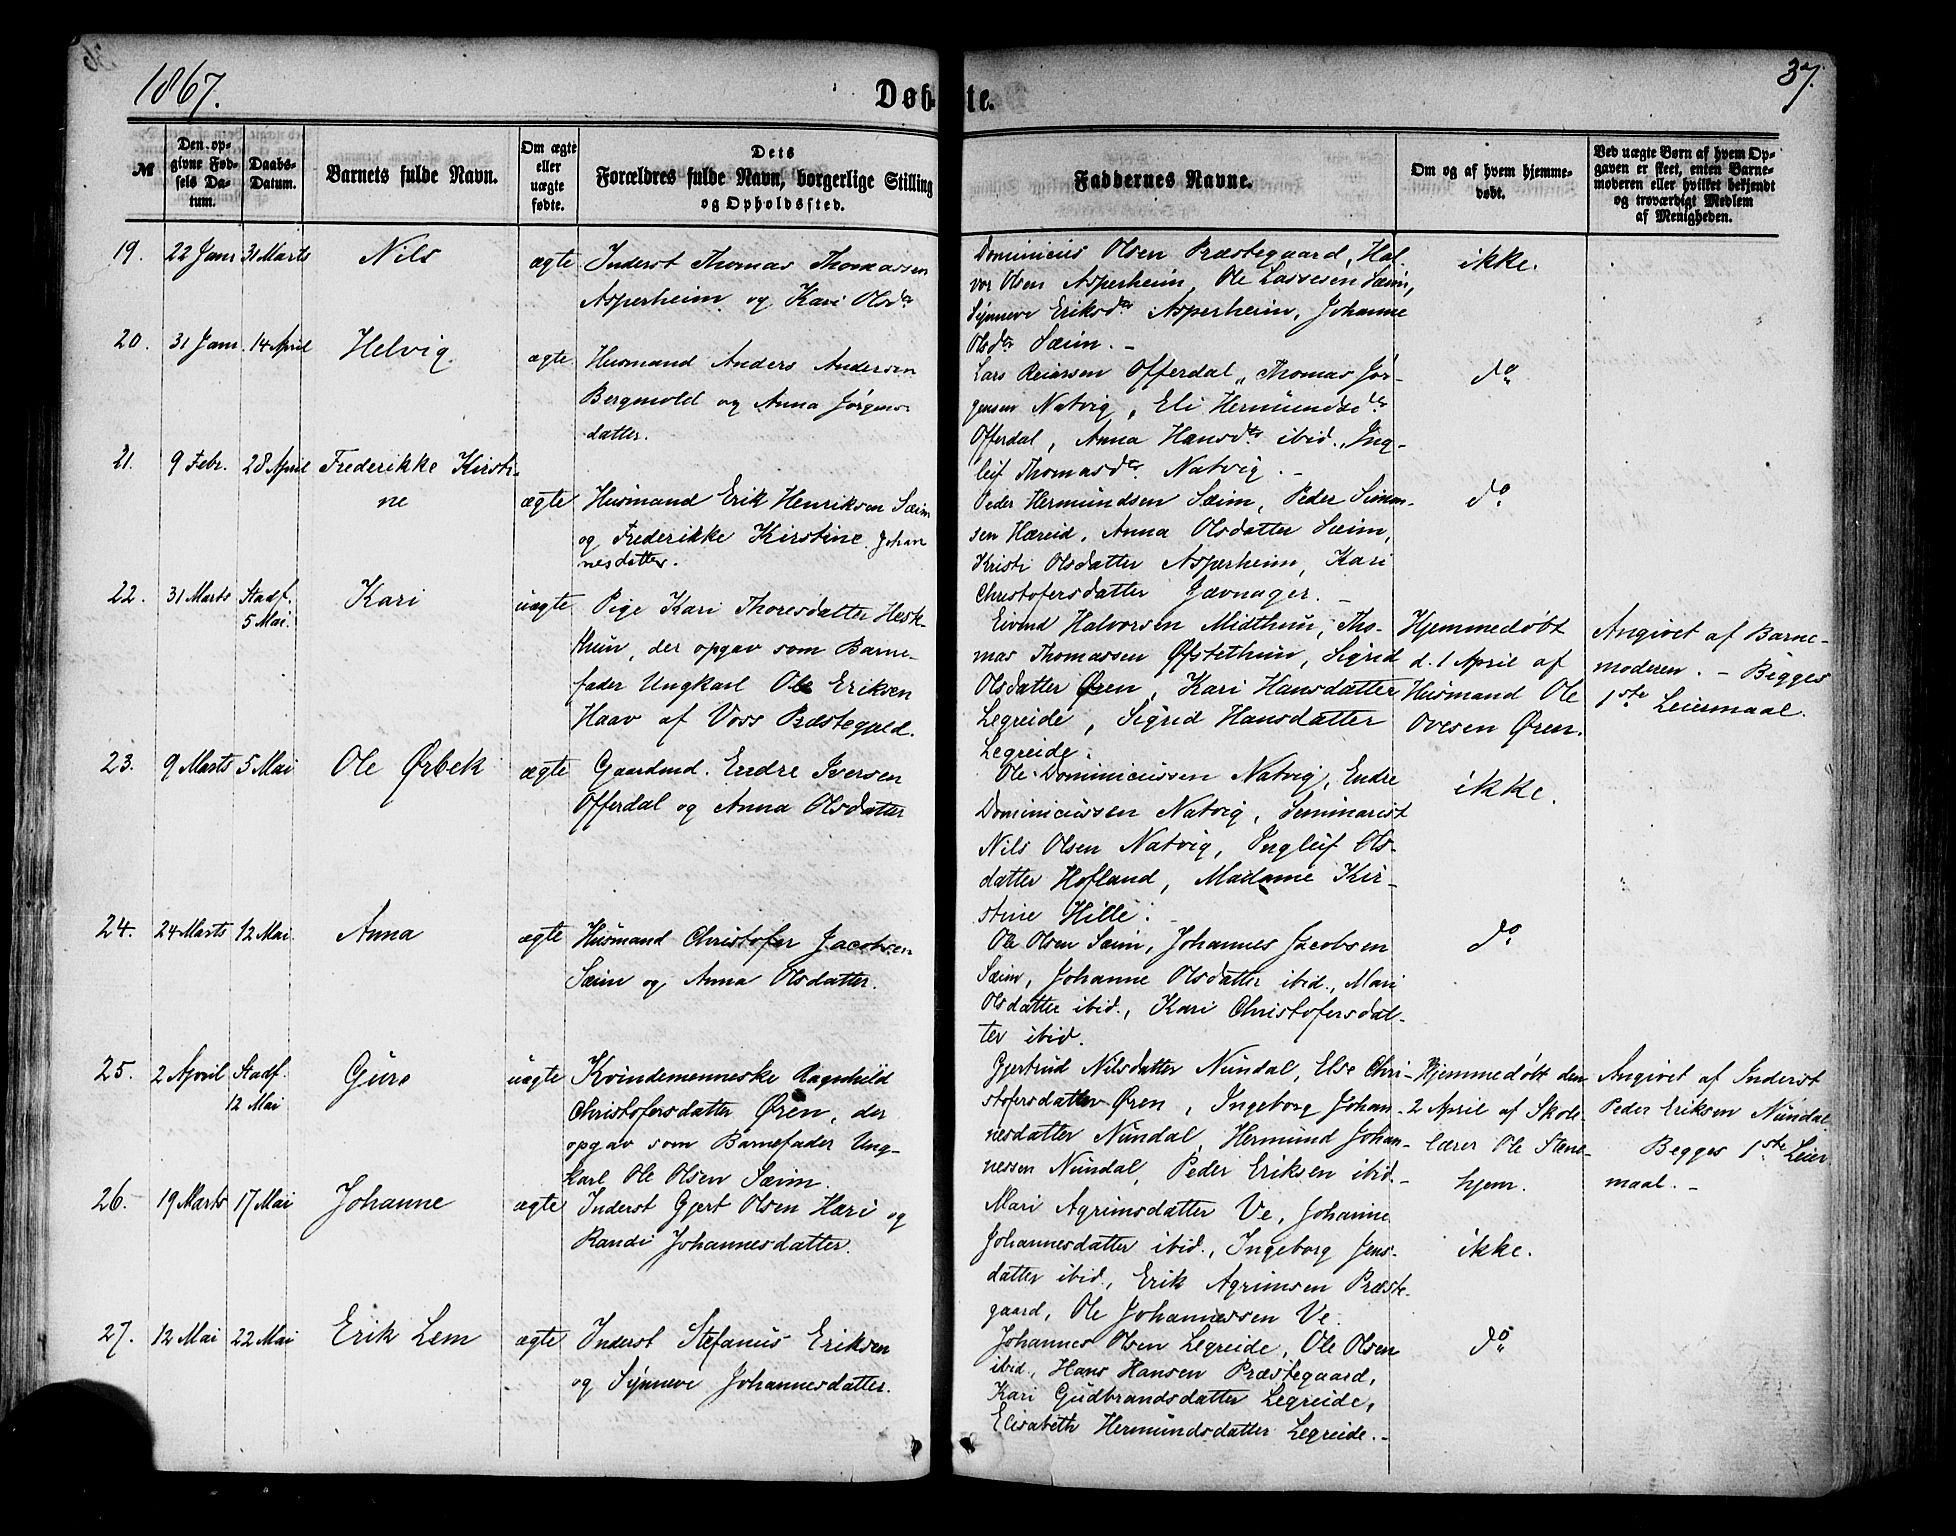 1867.
Døbte.
37.
№
Den opgivne Fødsels Datum.
Daabs-Datum.
Barnets fulde Navn.
Om ægte eller uægte fødte.
Dets Forældres fulde Navn, borgerlige Stilling og Opholdssted.
Faddernes Navne.
Om og af hvem hjemmedøbt.
Ved uægte Børn af hvem Opgaven er skeet, enten Barnemoderen eller hvilket bekjendt og troværdigt Medlem af Menigheden.
19. 22 Janr 31 Marts Nils ægte
Inderst Thomas Thomassen
Asperheim og Kari Olsdr
Dominicus Olsen Præstegaard, Hal-
vor Olsen Asperheim, Ole Lassesen Sæim,
Synneve Eriksdr Asperheim, Johanne
Olsdr Sæim. –
ikke.
20. 31 Janr. 14 April Helvig ægte
Husmand Anders Andersen
Bergnold og Anna Jørgens-
datter.
Lars Reiarsen Offerdal, Thomas Jør-
gensen Natvig, Eli Hermundsdr
Offerdal, Anna Hansdr ibid., Ing-
leif Thomasdr Natvig. –
do
21. 9 Febr. 28 April Frederikke Kirsti-
ne ægte
Husmand Erik Henriksen Sæim
og Frederikke Kirstine Johan
nesdatter.
Peder Hermundsen Sæim, Peder Simon-
sen Hæreid, Anna Olsdatter Sæim,
Kristi Olsdatter Asperheim, Kari
Christofersdatter Jævnager. –
do
22. 31 Marts Stadf.
5 Mai. Kari uægte
Pige Kari Thoresdatter Hesk-
thun, der opgav som Barne-
fader Ungkarl Ole Eriksen
Haav af Voss Præstegjeld.
Eivind Halvorsen Midthun, Tho-
mas Thomassen Øfstethun, Sigrid
Olsdatter Øren, Kari Hansdatter
Legreide, Sigrid Hansdatter
Legreide.
Hjemmedøbt
d. 1 April af
Husmand Ole
Ovesen Øren.
Angivet af Barne-
moderen. – Begges
1ste Leiermaal.
23. 9 Marts 5 Mai Ole Ørbek ægte
Gaardmd. Endre Iversen
Offerdal og Anna Olsdatter
Ole Dominicussen Natvig, Endre
Dominicussen Natvig, Seminarist
Nils Olsen Natvig, Ingleif Ols-
datter Hofland, Madame Kir-
stine Hille. –
ikke.
24. 24 Marts 12 Mai. Anna ægte
Husmand Christofer Jacobsen
Sæim og Anna Olsdatter.
Ole Olsen Sæim, Johannes Jacobsen
Sæim, Johanne Olsdatter ibid., Mari
Olsdatter ibid., Kari Christofersdat-
ter ibid.
do
25. 2 April Stadf.
12 Mai Guro uægte
Kvindemenneske Ragnhild
Christofersdatter Øren, der
opgav som Barnefader Ung-
karl Ole Olsen Sæim.
Gjertrud Nilsdatter Nundal, Else Chri-
stofersdatter Øren, Ingeborg Johan-
nesdatter Nundal, Hermund Johan-
nessen Nundal, Peder Eriksen ibid. –
Hjemmedøbt den
2 April af Skole-
lærer Ole Stene-
hjem.
Angivet af Inderst
Peder Eriksen Nundal
Begges 1ste Leier
maal. –
26. 19 Marts 17 Mai Johanne ægte
Inderst Gjert Olsen Hæri og
Randi Johannesdatter.
Mari Agrimsdatter Ve, Johanne
Johannesdatter ibid., Ingeborg Jens-
datter ibid., Erik Agrimsen Præste-
gaard, Ole Johannessen Ve.
ikke.
27. 12 Mai 22 Mai Erik Lem ægte
Inderst Stefanus Eriksen
og Synneve Johannesdatter.
Johannes Olsen Legreide, Ole Olsen
ibid, Hans Hansen Præstegaard,
Kari Gudbrandsdatter Legreide,
Elisabeth Hermundsdatter Legreide. –
do